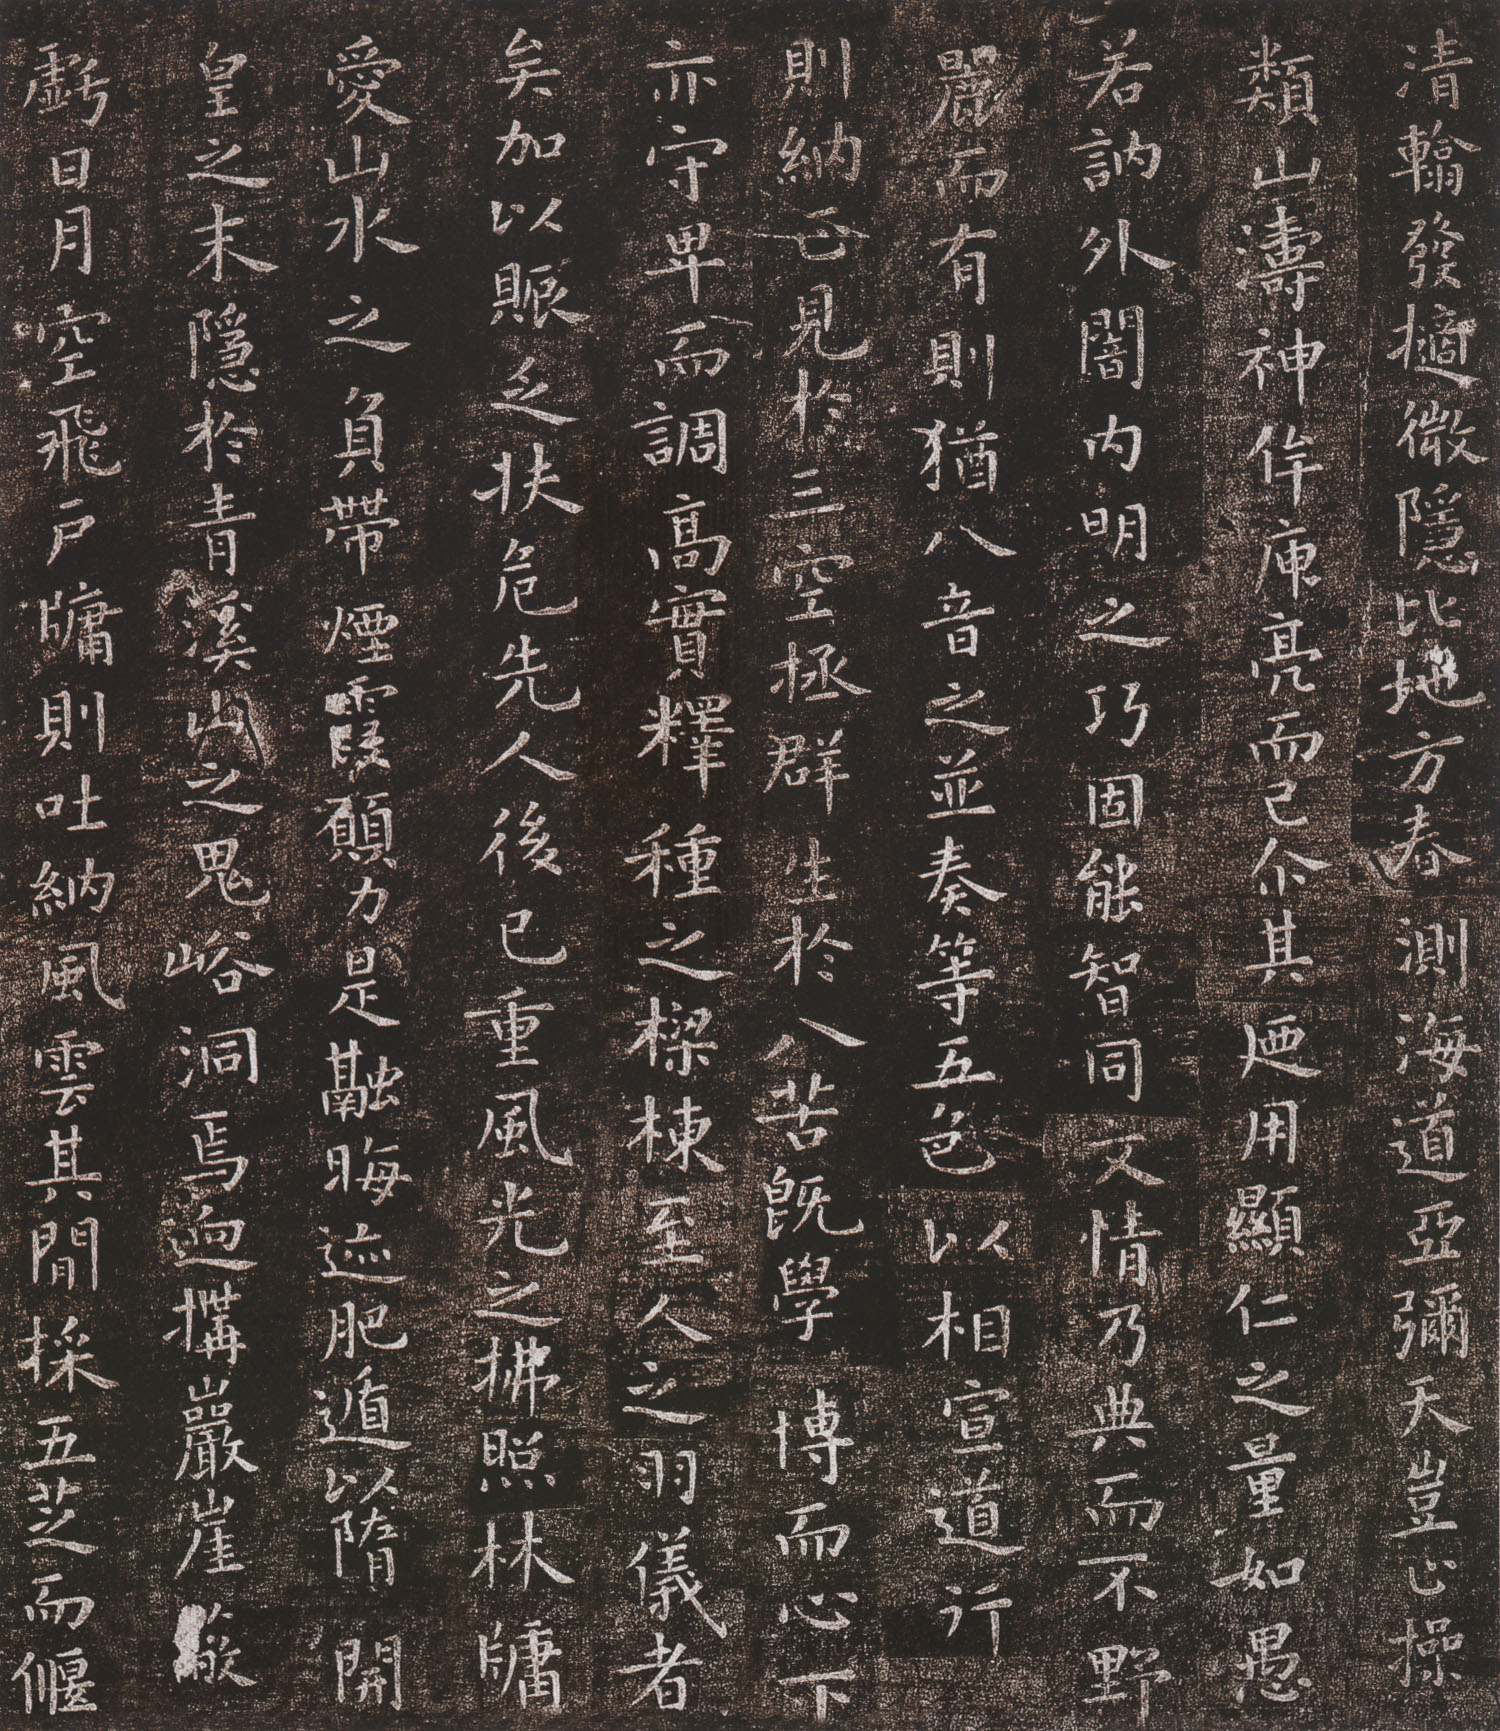 清翰發擿微隱比地方春測海道亞彌天豈止操
類山濤神侔庾亮而已尒其廼用顯仁之量如愚
若訥外闇内明之巧固能智同文情乃典而不野
麗而有則猶八音之並奏等五色以相宣道行
則納正見於三空拯群生於八苦既學博而心下
亦守卑而調高實釋種之樑棟至人之羽儀者
矣加以賑乏扶危先人後已重風光之拂照林牖
愛山水之負帶煙霞願力是融晦迹肥遁以隋開
皇之末隱於青溪山之鬼峪洞焉迥搆巖崖蔽
虧日月空飛戶牖則吐納風雲其間採五芝而偃